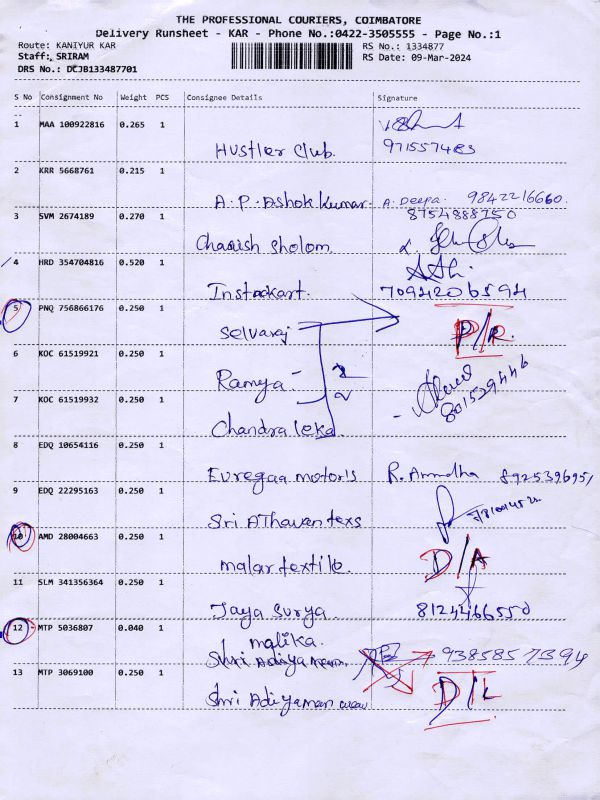 THE PROFESSIONAL COURIERS, COIMBATORE
Delivery Runsheet - KAR - Phone No.:0422-3505555 - Page No.:1
Route: KANIYUR KAR RS No.: 1334877
Staff: SRIRAM RS Date: 09-Mar-2024
DRS No.: DCJB133487701
S No Consignment No Weight PCS Consignee Details Signature
1 MAA 100922816 0.265 1
Hustler Club.
2 KRR 5668761 0.215 1
A.P.Ashok kumar. A. Deepa 9842216660.
3 SVM 2674189 0.270 1 8754888750
Charish Sholom.
4 HRD 354704816 0.520 1
Instakart. 7094206594
5 PNQ 756866176 0.250 1
Selvaraj P/R.
6 KOC 61519921 0.250 1
Ramya
7 KOC 61519932 0.250 1
Chandra leka
8 EDQ 10654116 0.250 1
Euregaa motor's R. Amudha
9 EDQ 22295163 0.250 1
Sri AThavan texs
10 AMD 28004663 0.250 1
malar textile. D/A
11 SLM 341356364 0.250 1
Jaya Surya 8124466550
12 MTP 5036807 0.040 1
malika.
Shri Adiyaman 9385857394
13 MTP 3069100 0.250 1
Shri Adiyaman D/L